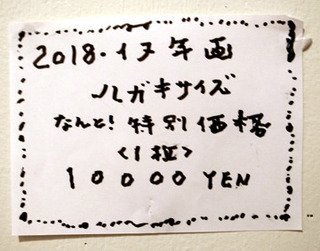 2018.イヌ年画
ハガキサイズ
なんと!特別価格
<1枚>
10000 YEN